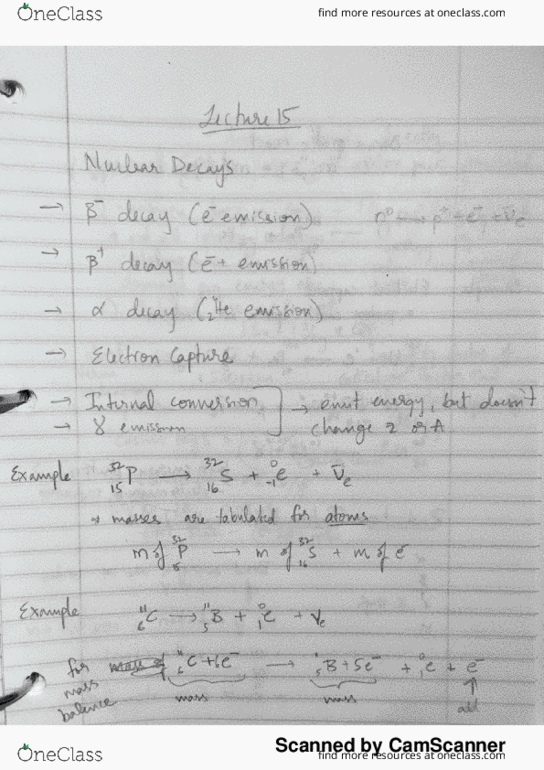 OneClass
find more resources at oneclass.com
Lecture 15
Nuclear Decays
→ β⁻ decay (e⁻ emission) n⁰ → p⁺ + e⁻ + ν̄e
→ β⁺ decay (e⁺ emission)
→ α decay (⁴₂He emission)
→ Electron Capture
→ Internal conversion
→ γ emission
→ emit energy, but doesn't
change z or A
Example ³²₁₅P → ³²₁₆S + ⁰₋₁e + ν̄e
* masses are tabulated for atoms
m of ³²₁₅P → m of ³²₁₆S + m of e⁻
Example ¹¹₆C → ¹¹₅B + ⁰₁e + νe
for mass balance ¹¹₆C + 6e⁻ → ¹¹₅B + 5e⁻ + ⁰₁e + e⁻
mass mass ↑
add
Scanned by CamScanner
OneClass
find more resources at oneclass.com